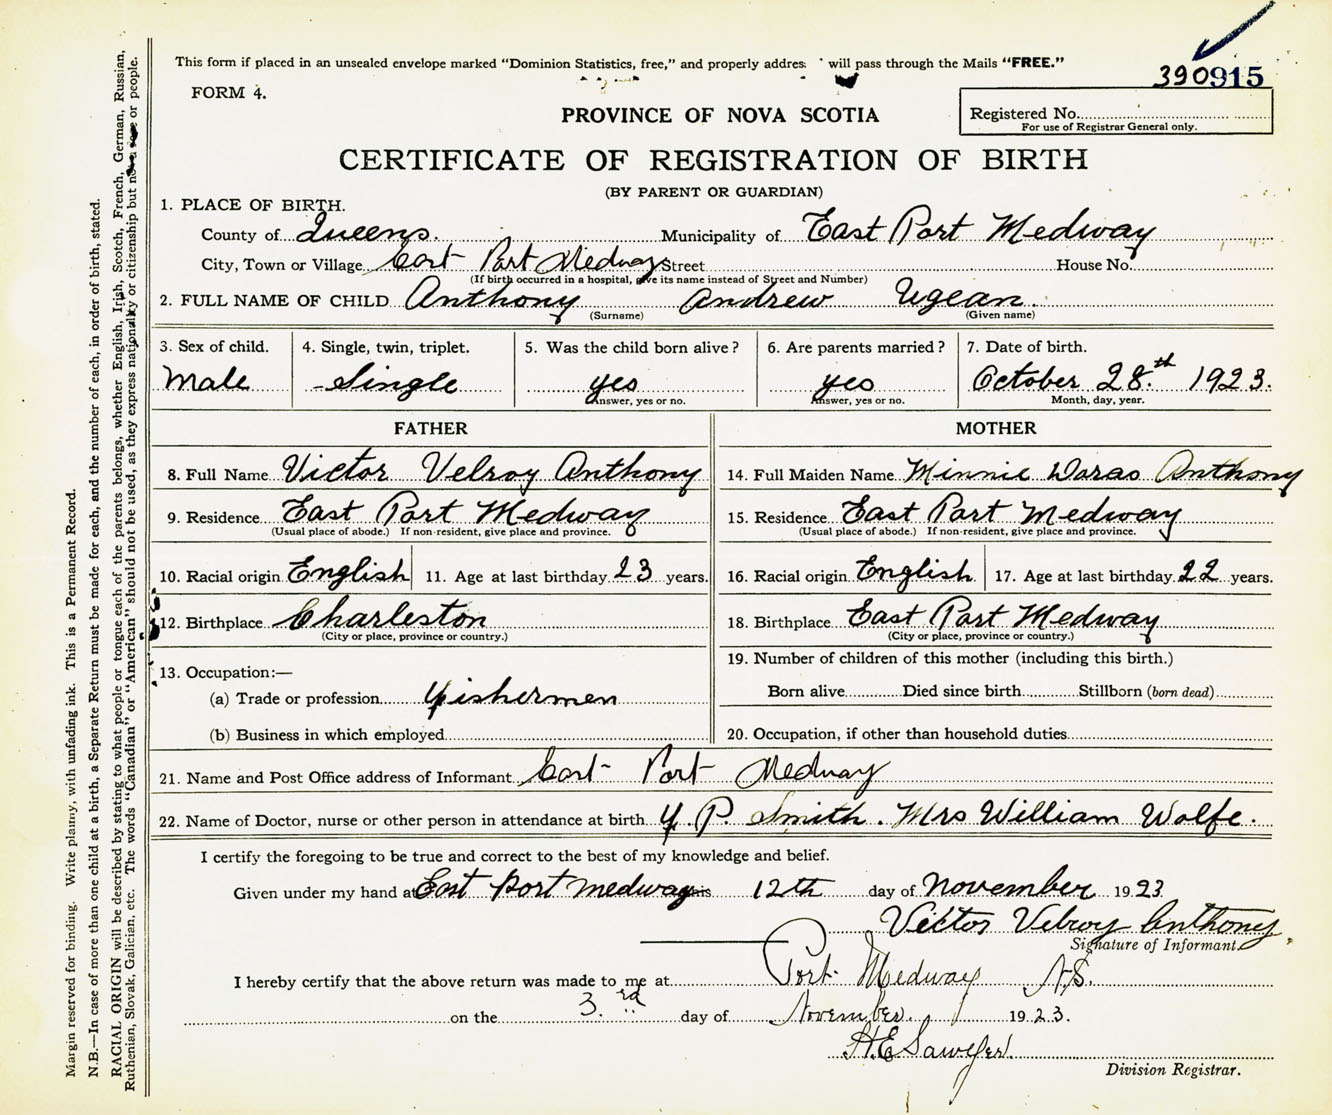 This form if placed in an unsealed envelope marked "Dominion Statistics, free," and properly addres will pass through the Mails "FREE."
390915
FORM 4.
PROVINCE OF NOVA SCOTIA
Registered No.
For use of Registrar General only.
CERTIFICATE OF REGISTRATION OF BIRTH
(BY PARENT OR GUARDIAN)
1. PLACE OF BIRTH.
County of Queens. Municipality of East Port Medway
City, Town or Village East Port Medway Street House No.
(If birth occurred in a hospital, give its name instead of Street and Number)
2. FULL NAME OF CHILD Anthony Andrew Ugean.
(Surname) (Given name)
3. Sex of child. 4. Single, twin, triplet. 5. Was the child born alive? 6. Are parents married? 7. Date of birth.
Male Single yes yes October 28th 1923.
Answer, yes or no. Answer, yes or no. Month, day, year.
FATHER MOTHER
8. Full Name Victor Velroy Anthony 14. Full Maiden Name Minnie Doras Anthony
9. Residence East Port Medway 15. Residence East Port Medway
(Usual place of abode.) If non-resident, give place and province. (Usual place of abode.) If non-resident, give place and province.
10. Racial origin English 11. Age at last birthday 23 years. 16. Racial origin English 17. Age at last birthday 22 years.
12. Birthplace Charleston 18. Birthplace East Port Medway
(City or place, province or country.) (City or place, province or country.)
13. Occupation:— 19. Number of children of this mother (including this birth.)
(a) Trade or profession fishermen Born alive Died since birth Stillborn (born dead)
(b) Business in which employed 20. Occupation, if other than household duties
21. Name and Post Office address of Informant East Port Medway
22. Name of Doctor, nurse or other person in attendance at birth P. Smith. Mrs William Wolfe.
I certify the foregoing to be true and correct to the best of my knowledge and belief.
Given under my hand at East Port Medway this 12th day of November 1923
Victor Velroy Anthony
Signature of Informant.
I hereby certify that the above return was made to me at Port Medway N.S.
on the 3rd day of November 1923.
H.E Sawyer.
Division Registrar.
Margin reserved for binding. Write plainly, with unfading ink. This is a Permanent Record.
N.B.—In case of more than one child at a birth, a Separate Return must be made for each, and the number of each, in order of birth, stated.
RACIAL ORIGIN will be described by stating to what people or tongue each of the parents belongs, whether English, Irish, Scotch, French, German, Russian,
Ruthenian, Slovak, Galician, etc. The words "Canadian" or "American" should not be used, as they express nationality or citizenship but not a race or people.